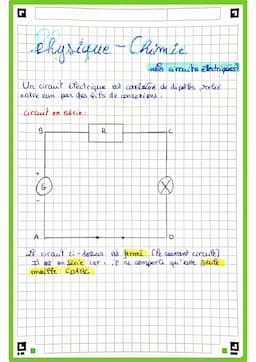 Physique-Chimie
Les circuits électriques
Un circuit électrique est constitué de dipôles, reliés
entre eux par des fils de connexions.
Circuit en série:
B R C
+
G
-
A D
Le circuit ci-dessus est fermé (le courant circule)
Il est en série car il ne comporte qu'une seule
maille CDABC